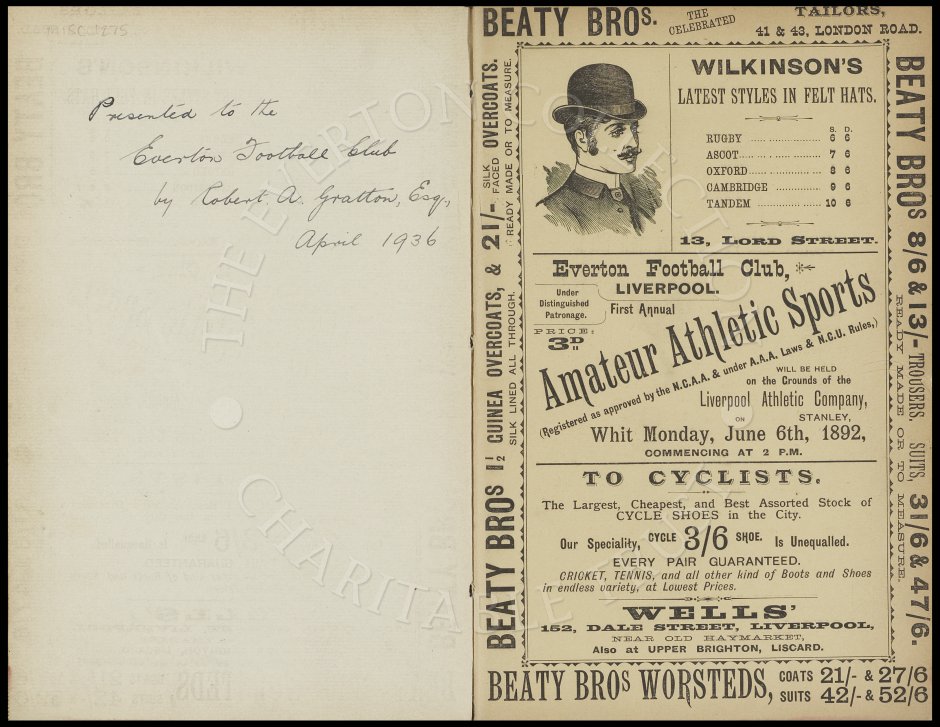 MISC 1275
Presented to the
Everton Football Club
by Robert A. Gratton, Esq.,
April 1936
BEATY BROS. THE CELEBRATED TAILORS,
41 & 43, LONDON ROAD.
BEATY BROS 1½ GUINEA OVERCOATS, & 21/- SILK FACED OVERCOATS.
SILK LINED ALL THROUGH. READY MADE OR TO MEASURE.
WILKINSON'S
LATEST STYLES IN FELT HATS.
S. D.
RUGBY 6 6
ASCOT 7 6
OXFORD 8 6
CAMBRIDGE 9 6
TANDEM 10 6
13, LORD STREET.
Everton Football Club,
LIVERPOOL.
Under
Distinguished
Patronage.
First Annual
PRICE:
3D
Amateur Athletic Sports
(Registered as approved by the N.C.A.A. & under A.A.A. Laws & N.C.U. Rules,)
WILL BE HELD
on the Grounds of the
Liverpool Athletic Company,
STANLEY,
ON
Whit Monday, June 6th, 1892,
COMMENCING AT 2 P.M.
TO CYCLISTS.
The Largest, Cheapest, and Best Assorted Stock of
CYCLE SHOES in the City.
Our Speciality, CYCLE 3/6 SHOE. Is Unequalled.
EVERY PAIR GUARANTEED.
CRICKET, TENNIS, and all other kind of Boots and Shoes
in endless variety, at Lowest Prices.
WELLS'
152, DALE STREET, LIVERPOOL,
NEAR OLD HAYMARKET,
Also at UPPER BRIGHTON, LISCARD.
BEATY BROS 8/6 & 13/- TROUSERS. SUITS, 31/6 & 47/6.
READY MADE OR TO MEASURE.
BEATY BROS WORSTEDS, COATS 21/- & 27/6
SUITS 42/- & 52/6
THE EVERTON COLLECTION
CHARITABLE TRUST